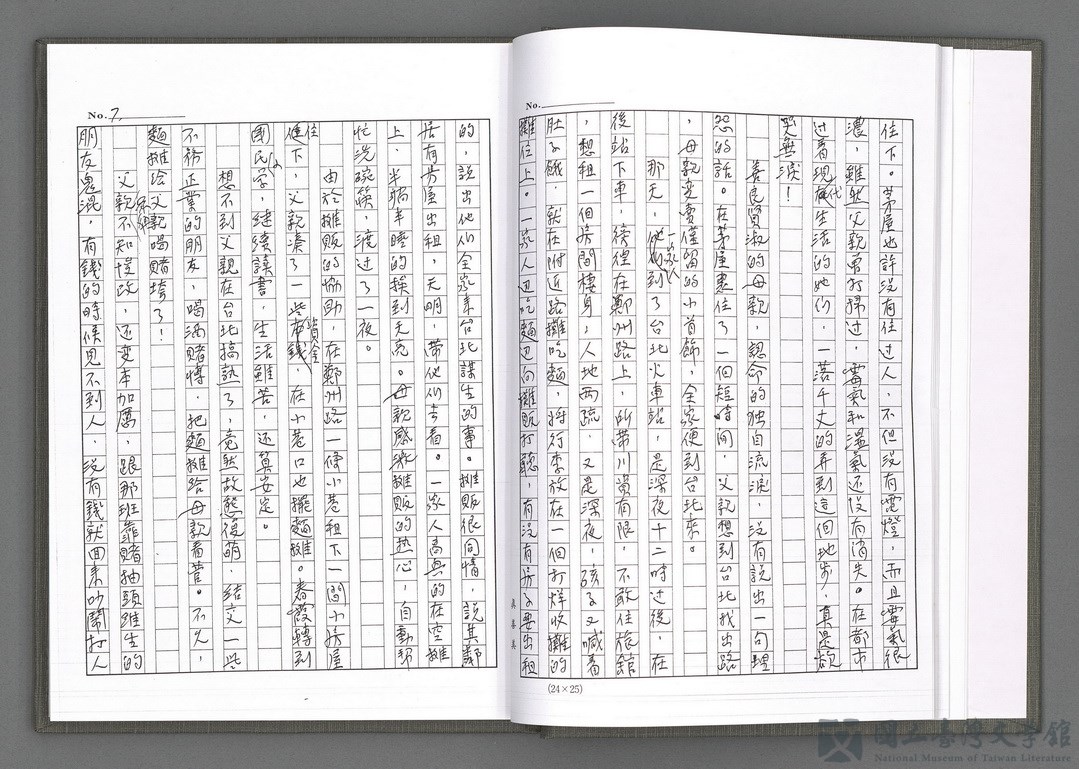 No.
住下。茅屋也許沒有住过人，不但沒有電燈，而且霉氣很
濃，雖然父親弟打掃过，霉氣和溼氣还沒有消失。在都市
过着現代生活的她们，一落千丈的弄到這個地步，真是欲
哭無淚！
善良賢淑的母親，認命的独自流淚，沒有說出一句埋
怨的話。在茅屋裏住了一個短時间，父親想到台北找出路
，母親变賣僅留的小首飾，全家便到台北來。
那天，一家人到了台北火車站，是深夜十二時过後，在
後站下車，徬徨在鄭州路上，所带川資有限，不敢住旅館
，想租一個房間棲身，人地两疏，又是深夜，孩子又喊着
肚子餓，就在附近路攤吃麵，將行李放在一個打烊收攤的
攤位上。一家人边吃麵边向攤販打聽，有沒有房子要出租
(24×25)
No. 7
的，說出他们全家來台北謀生的事。攤販很同情，說其鄰
居有房屋出租，天明，带他们去看。一家人高興的在空攤
上，半躺半睡的挨到天亮。母親感激攤販的热心，自動幫
忙洗碗筷，渡过了一夜。
由於攤販的協助，在鄭州路一條小巷租下一間小房屋
住進下，父親凑了一些資金，在小巷口也擺麵攤。春霞轉到
國民小学，継续讀書，生活雖苦，还算安定。
想不到父親在台北搞熟了，竟然故態復萌，结交一些
不務正業的朋友，喝酒賭博，把麵攤给母親看管。不久，
麵攤给父親喝賭垮了！
父親不知悔改，还变本加厲，跟那班靠賭抽頭維生的
朋友鬼混，有錢的時候見不到人，沒有錢就回來吵鬧打人
國立臺灣文學館
National Museum of Taiwan Literature